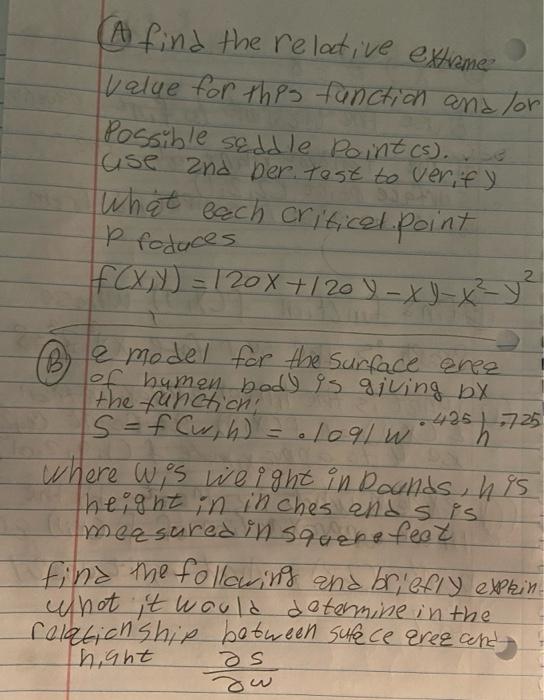 (A) find the relative extreme
value for this function and/or
possible saddle point(s).
use 2nd Der. test to verify
what each critical point
produces
f(x,y) = 120x + 120y - xy - x² - y²
(B) a model for the surface area
of human body is giving by
the function:
S = f(w,h) = .1091 w^.425 h^.725
where w is weight in pounds, h is
height in inches and s is
measured in square feet
find the following and briefly explain
what it would determine in the
relationship between surface area and
hight ∂s/∂w